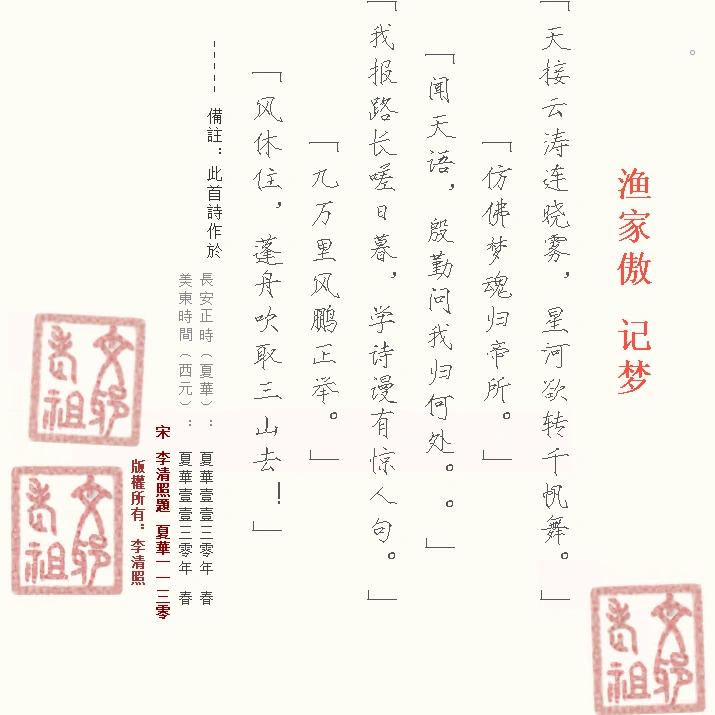 渔家傲 记梦
「天接云涛连晓雾，星河欲转千帆舞。」
「仿佛梦魂归帝所。」
「闻天语，殷勤问我归何处。。」
「我报路长嗟日暮，学诗漫有惊人句。」
「九万里风鹏正举。」
「风休住，蓬舟吹取三山去！」
-----備註：此首詩作於
長安正時（夏華）： 夏華壹壹三零年 春
美東時間（西元）： 夏華壹壹三零年 春
宋 李清照題 夏華一一三零
版權所有：李清照